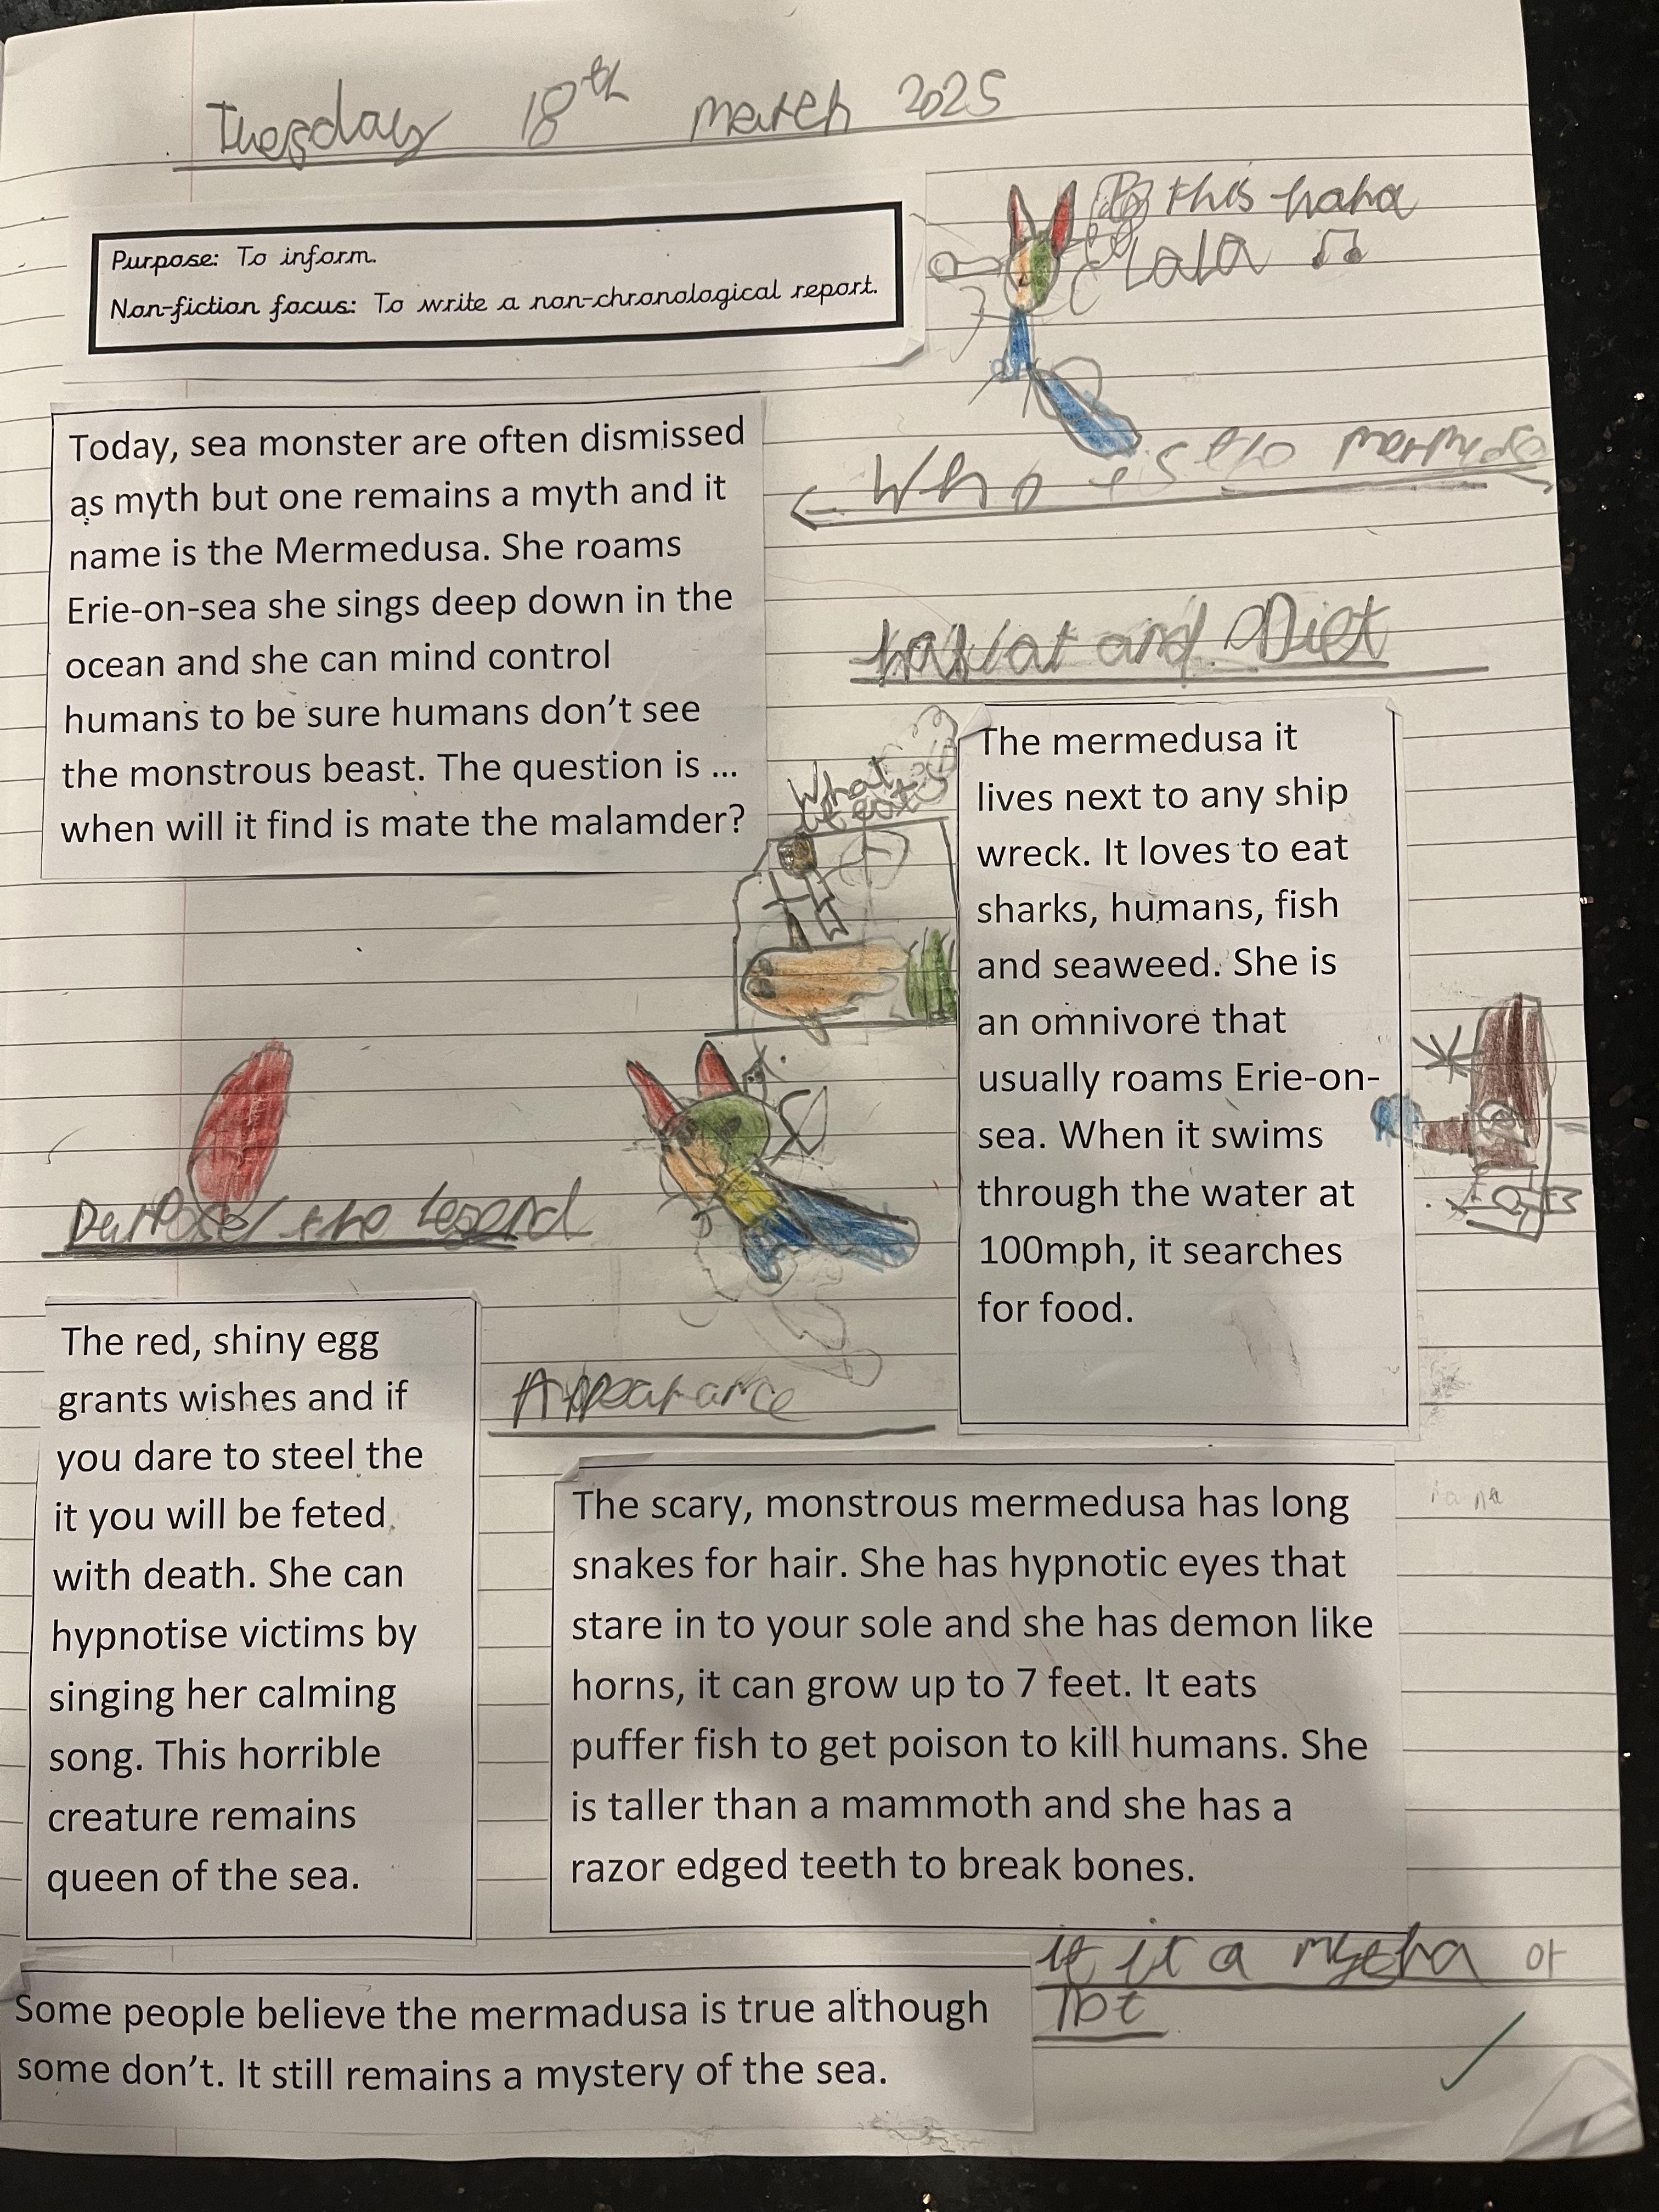 Tuesday 18th march 2025
Purpose: To inform.
Non-fiction focus: To write a non-chronological report.
this haha
Lala
Today, sea monster are often dismissed
as myth but one remains a myth and it
name is the Mermedusa. She roams
Erie-on-sea she sings deep down in the
ocean and she can mind control
humans to be sure humans don't see
the monstrous beast. The question is ...
when will it find is mate the malamder?
Who is
and Diet
What
The mermedusa it
lives next to any ship
wreck. It loves to eat
sharks, humans, fish
and seaweed. She is
an omnivore that
usually roams Erie-on-
sea. When it swims
through the water at
100mph, it searches
for food.
the Legend
The red, shiny egg
grants wishes and if
you dare to steel the
it you will be feted
with death. She can
hypnotise victims by
singing her calming
song. This horrible
creature remains
queen of the sea.
Appearance
The scary, monstrous mermedusa has long
snakes for hair. She has hypnotic eyes that
stare in to your sole and she has demon like
horns, it can grow up to 7 feet. It eats
puffer fish to get poison to kill humans. She
is taller than a mammoth and she has a
razor edged teeth to break bones.
it a or
Some people believe the mermadusa is true although
some don't. It still remains a mystery of the sea.